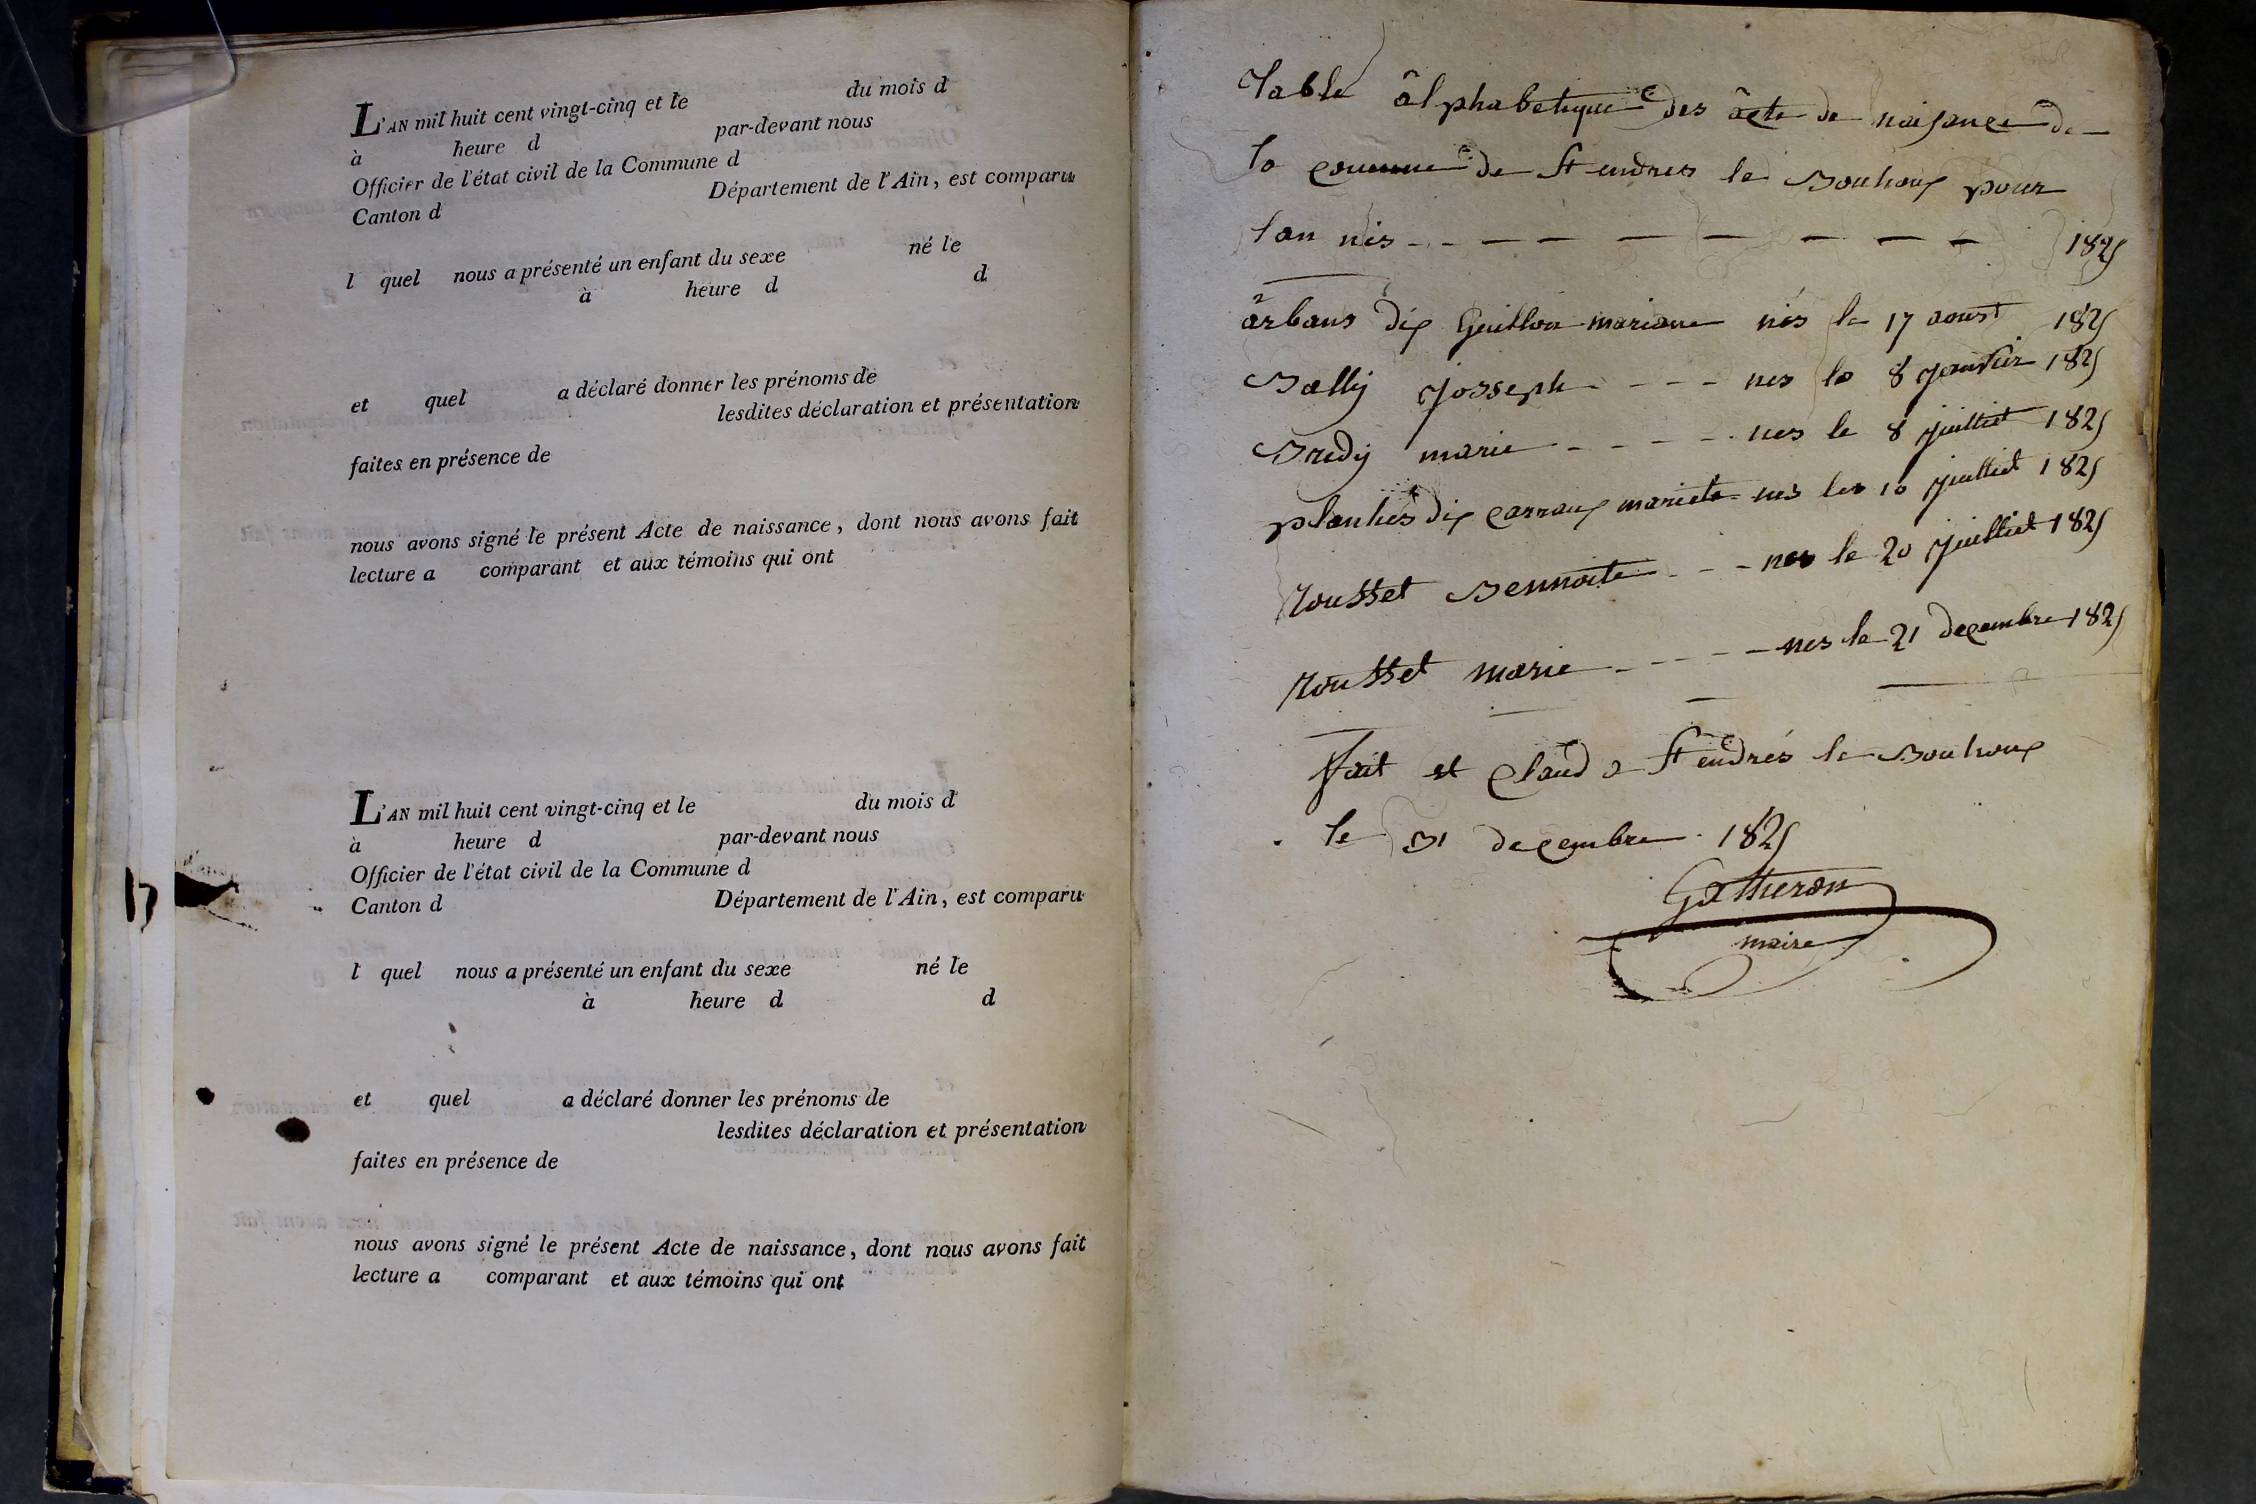 L'AN mil huit cent vingt-cinq et le du mois d
à heure d par-devant nous
Officier de l'état civil de la Commune d
Canton d Département de l'Ain, est comparu
l quel nous a présenté un enfant du sexe né le
à heure d d
et quel a déclaré donner les prénoms de
lesdites déclaration et présentation
faites en présence de
nous avons signé le présent Acte de naissance, dont nous avons fait
lecture a comparant et aux témoins qui ont
L'AN mil huit cent vingt-cinq et le du mois d
à heure d par-devant nous
Officier de l'état civil de la Commune d
Canton d Département de l'Ain, est comparu
l quel nous a présenté un enfant du sexe né le
à heure d d
et quel a déclaré donner les prénoms de
lesdites déclaration et présentation
faites en présence de
nous avons signé le présent Acte de naissance, dont nous avons fait
lecture a comparant et aux témoins qui ont
Table âlphabetique des âcte de naisance de
la comune de St endres le Bouhoux pour
lan 1825
ârbans dix Guillon mariane nés le 17 aoust 1825
Bally Josseph nes le 8 Janvier 1825
Bredy marie nes le 8 Juilliet 1825
planhes dix carraux mariete nes les 10 Juilliet 1825
rousset Bennoite nes le 20 Juilliet 1825
rousset marie nes le 21 decembre 1825
fait et Claud a St endrés le Bouhoux
le 31 decembre 1825
Gatheron
maire